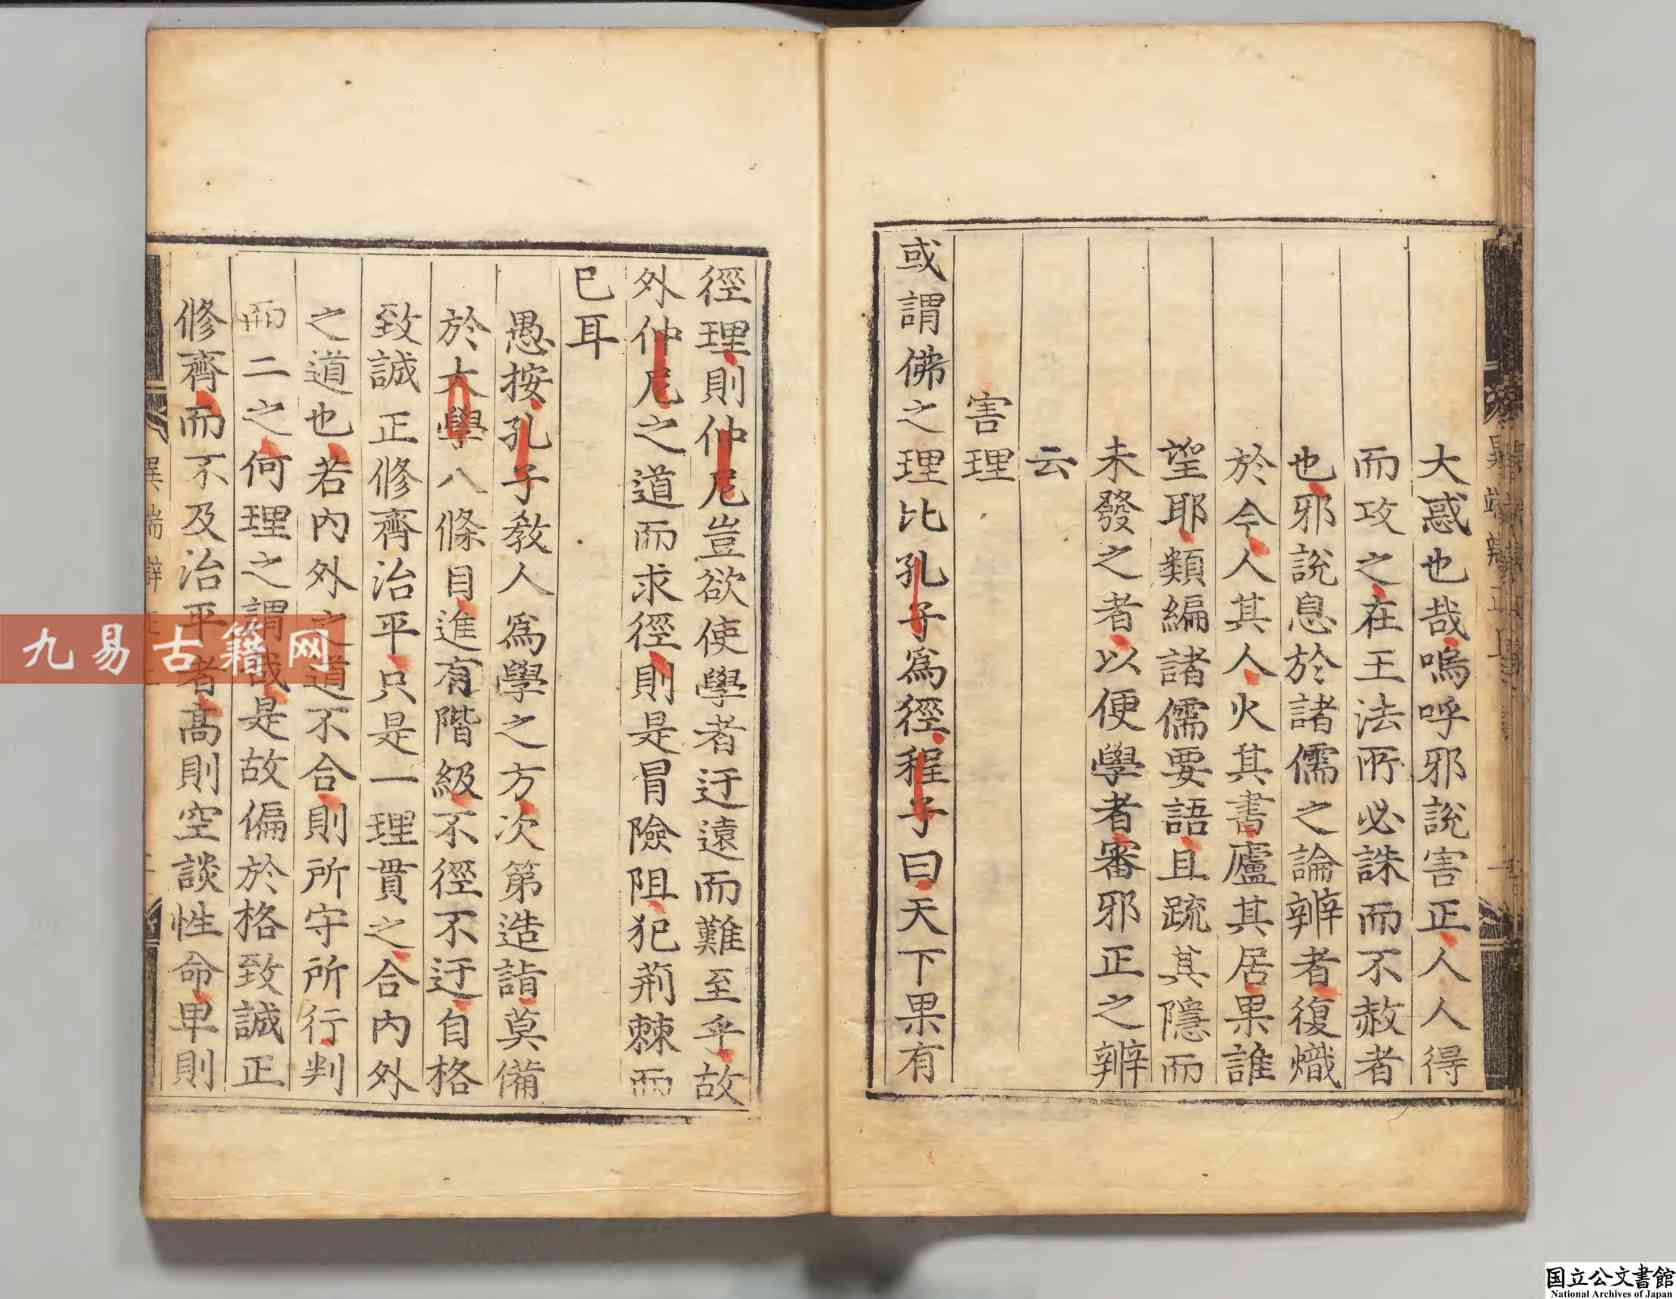 大惑也哉嗚呼邪說害正人人得
而攻之在王法所必誅而不赦者
也邪說息於諸儒之論辨者復熾
於今人其人火其書廬其居果誰
望耶類編諸儒要語且疏其隱而
未發之者以便學者審邪正之辨
云
害理
或謂佛之理比孔子爲徑程子曰天下果有
徑理則仲尼豈欲使學者迂遠而難至乎故
外仲尼之道而求徑則是冒險阻犯荊棘而
已耳
愚按孔子敎人爲學之方次第造詣莫備
於大學八條目進有階級不徑不迂自格
致誠正修齊治平只是一理貫之合內外
之道也若內外之道不合則所守所行判
而二之何理之謂哉是故偏於格致誠正
修齊而不及治平者高則空談性命卑則
異端辨正上
九易古籍网
国立公文書館
National Archives of Japan